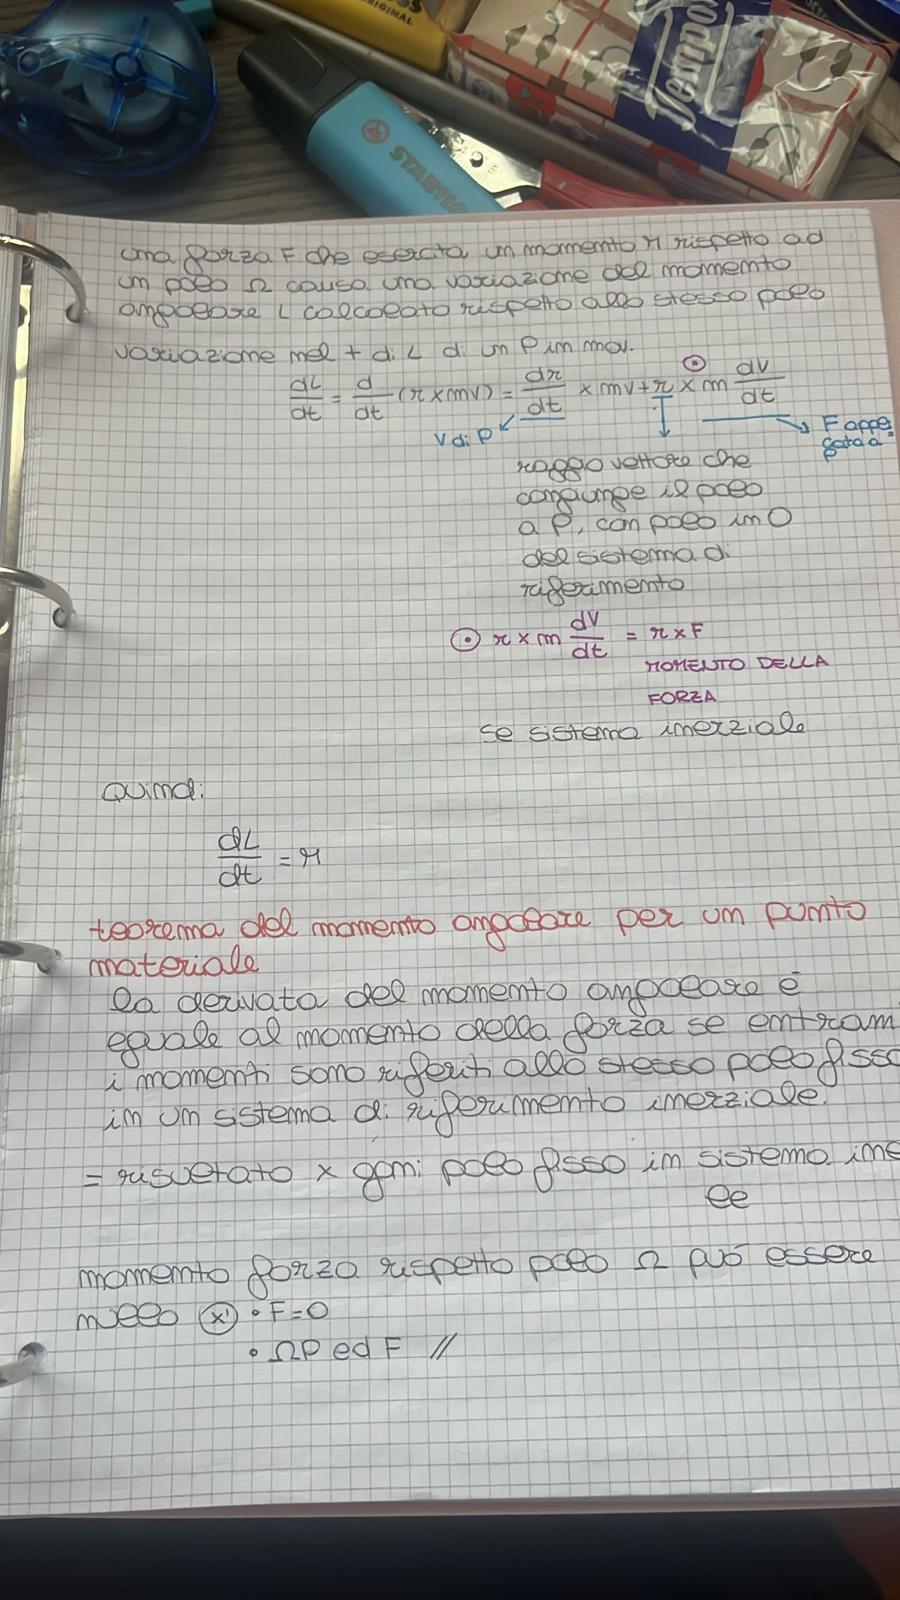 ORIGINAL
STABILO
Tempo
una forza F che esercita un momento M rispetto ad
un polo Ω causa una variazione del momento
angolare L calcolato rispetto allo stesso polo
variazione nel t di L di un P in mov.
dL/dt = d/dt (r × mv) = dr/dt × mv + r × m dv/dt
v di P
F appli
cata a
P
raggio vettore che
congiunge il polo
a P, con polo in O
del sistema di
riferimento
⊙ r × m dv/dt = r × F
MOMENTO DELLA
FORZA
se sistema inerziale
Quindi:
dL/dt = M
teorema del momento angolare per un punto
materiale
la derivata del momento angolare è
eguale al momento della forza se entram
i momenti sono riferiti allo stesso polo fisso
in un sistema di riferimento inerziale.
= risultato × ogni polo fisso in sistema ine
le
momento forza rispetto polo Ω può essere
nullo x' • F=0
• ΩP ed F //